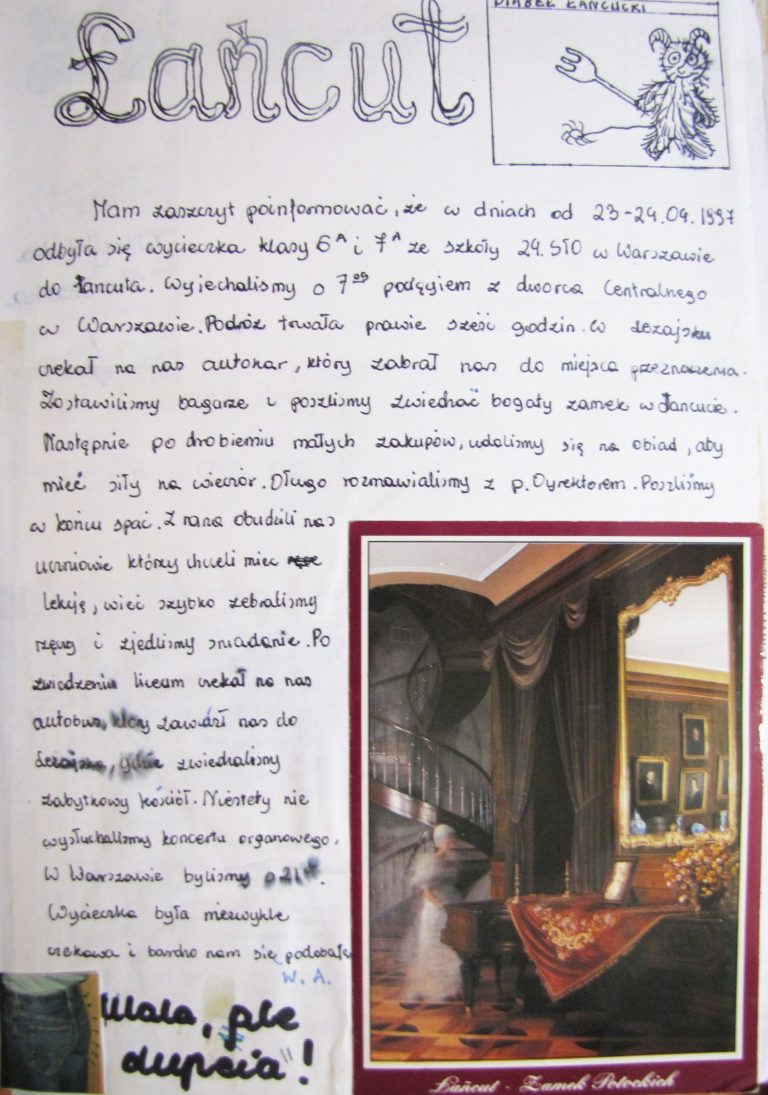 Łańcut
DIABEŁ ŁAŃCUCKI
Mam zaszczyt poinformować, że w dniach od 23-24.04.1997
odbyła się wycieczka klasy 6A i 7A ze szkoły 24.STO w Warszawie
do Łancuta. Wyjechalismy o 7 00 podcyiem z dworca Centralnego
w Warszawie. Podróż trwała prawie sześć godzin. W Leżajsku
czekał na nas autokar, który zabrał nas do miejsca przeznaczenia.
Zostawilismy bagarze i poszlismy zwiedzać bogaty zamek w Łancucie.
Następnie po drobieniu małych zakupów, udalismy się na obiad, aby
mieć siły na wieczór. Długo rozmawialismy z p. Dyrektorem. Poszliśmy
w końcu spać. Z rana obudzili nas
uczniowie którzy chcieli miec
lekcję, wieć szybko zebralismy
rzęczy i zjedlismy sniadanie. Po
zwiedzeniu liceum czekał na nas
autobus, który zawiózł nas do
Leżajska, gdzie zwiedzalismy
zabytkowy kościół. Niestety nie
wysłuchalismy koncertu organowego.
W Warszawie bylismy o 21
Wycieczka była niezwykle
ciekawa i bardzo nam się podobała
W. A.
Mała, ale
dupcia"!
Łańcut - Zamek Potockich